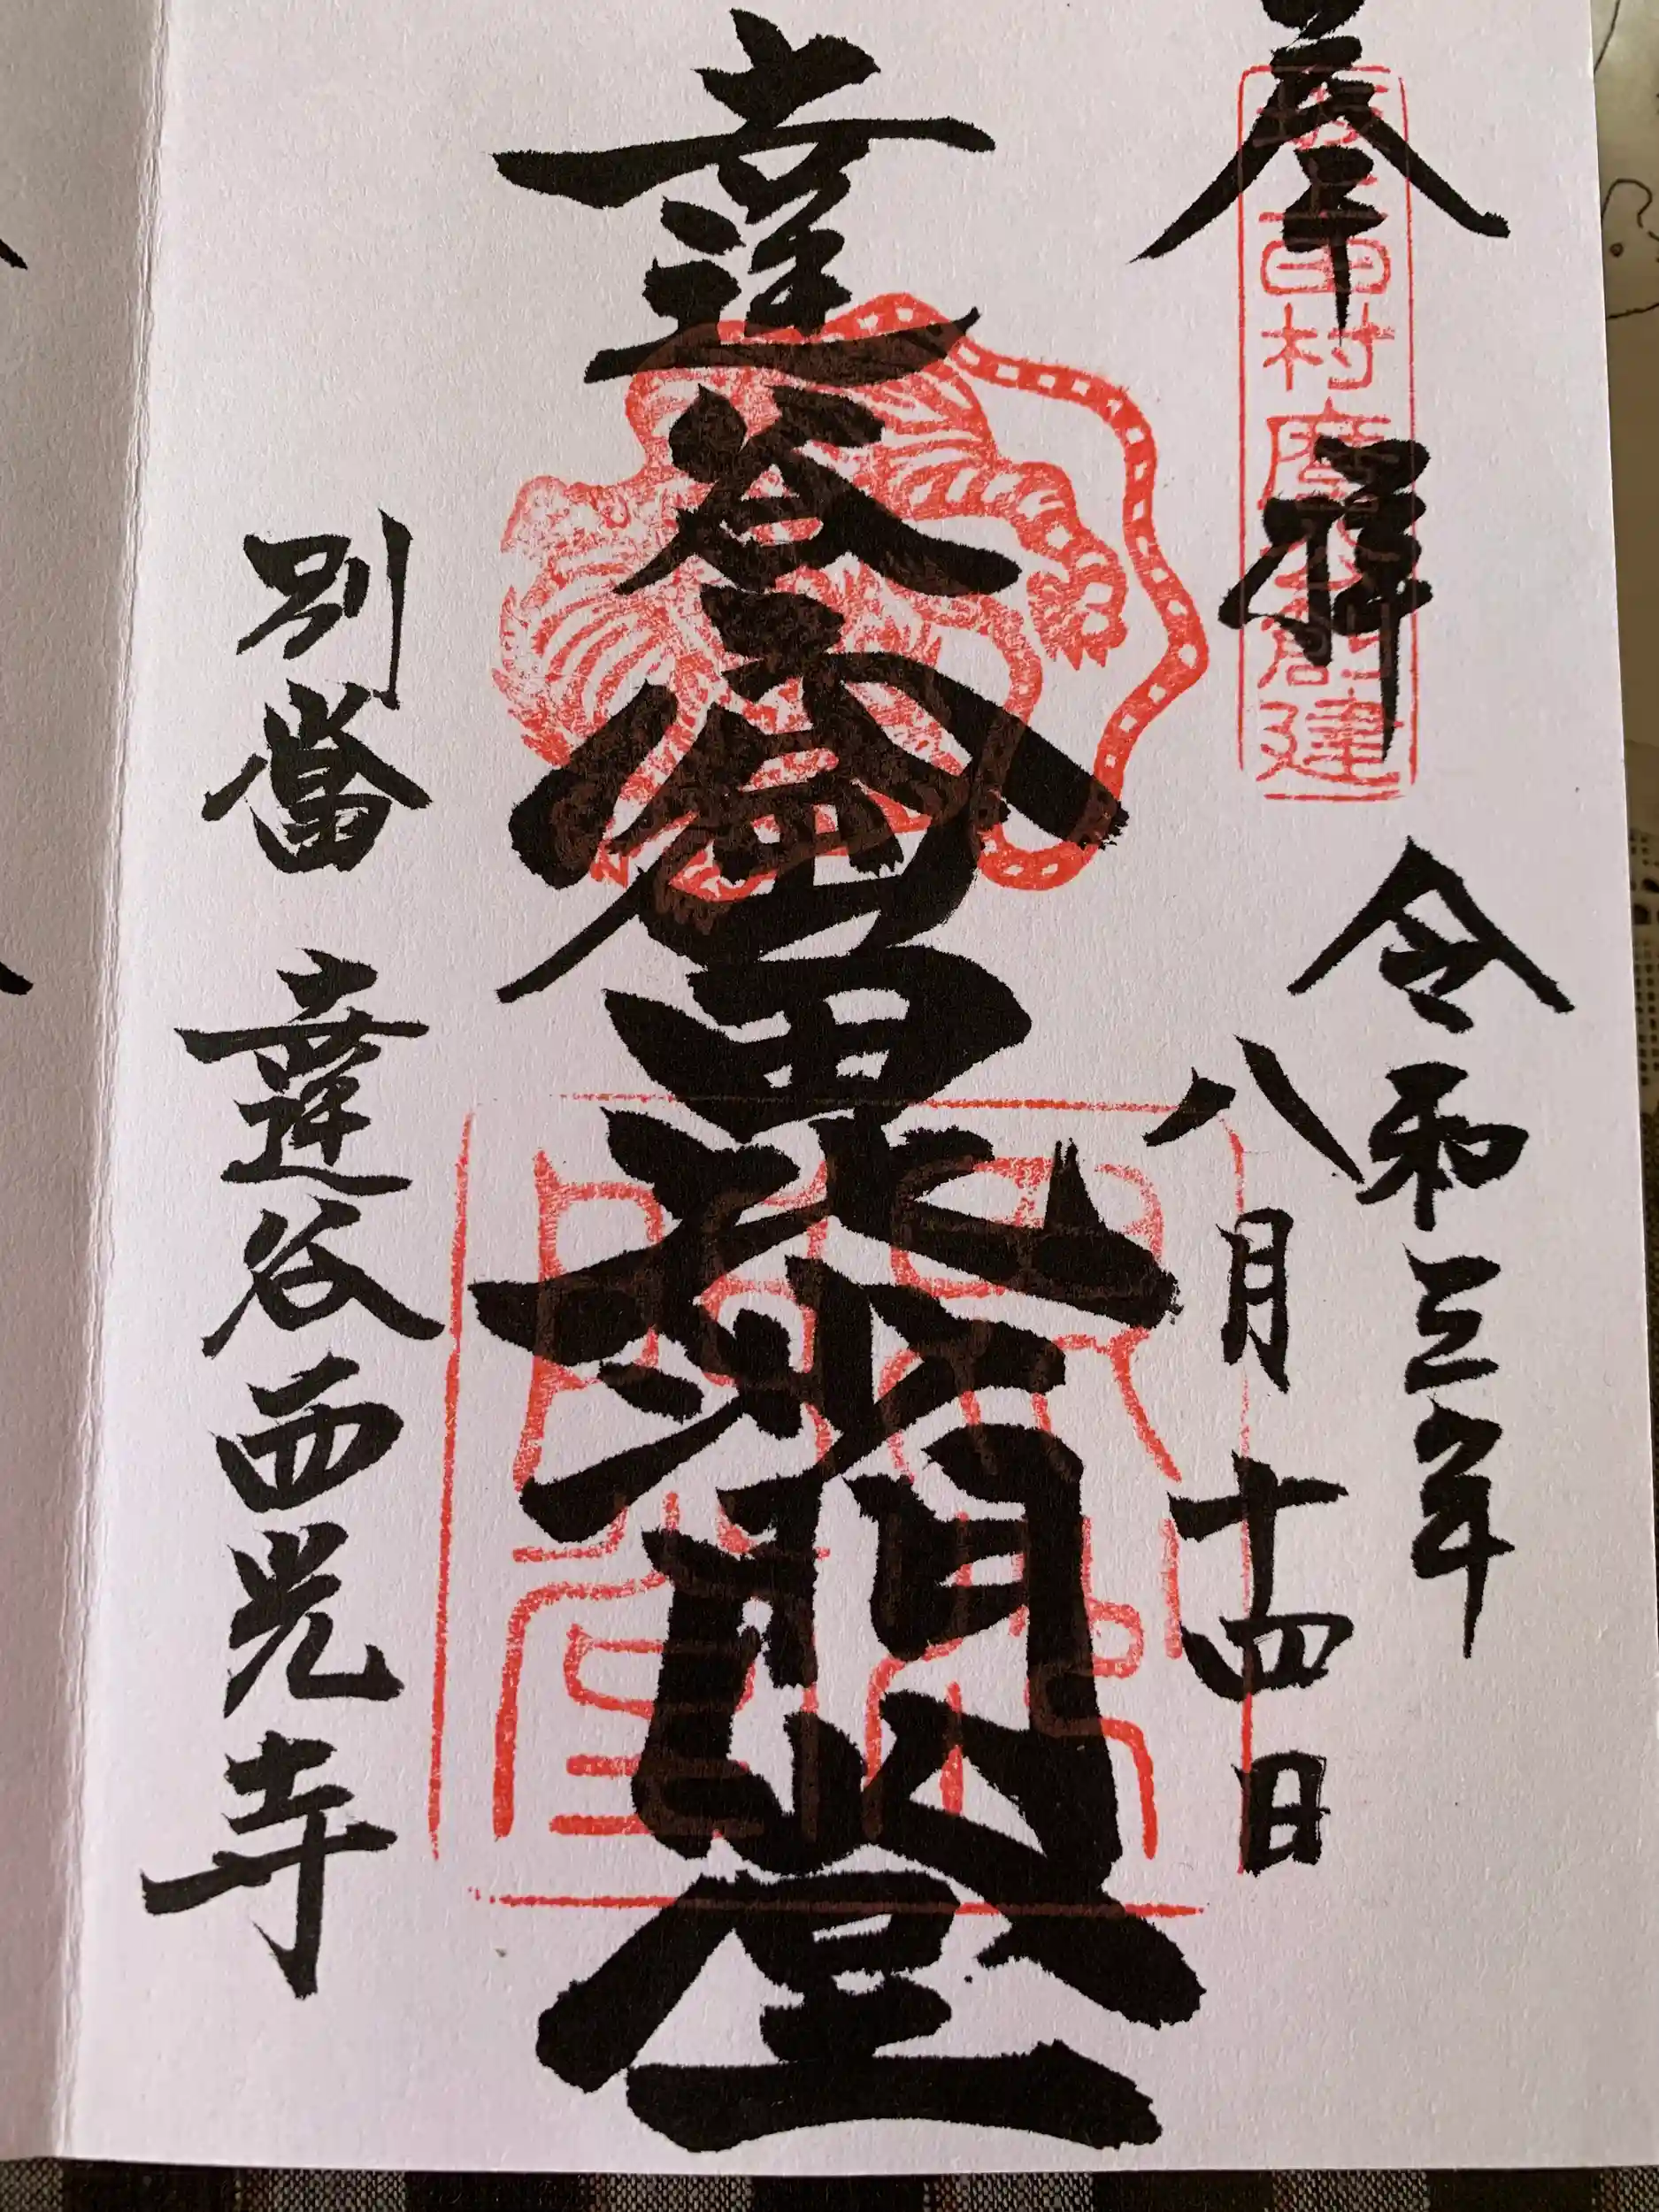 奉拝
坂上田村麿公創建
令和三年
八月十四日
達谷窟毘沙門堂
別當 達谷西光寺